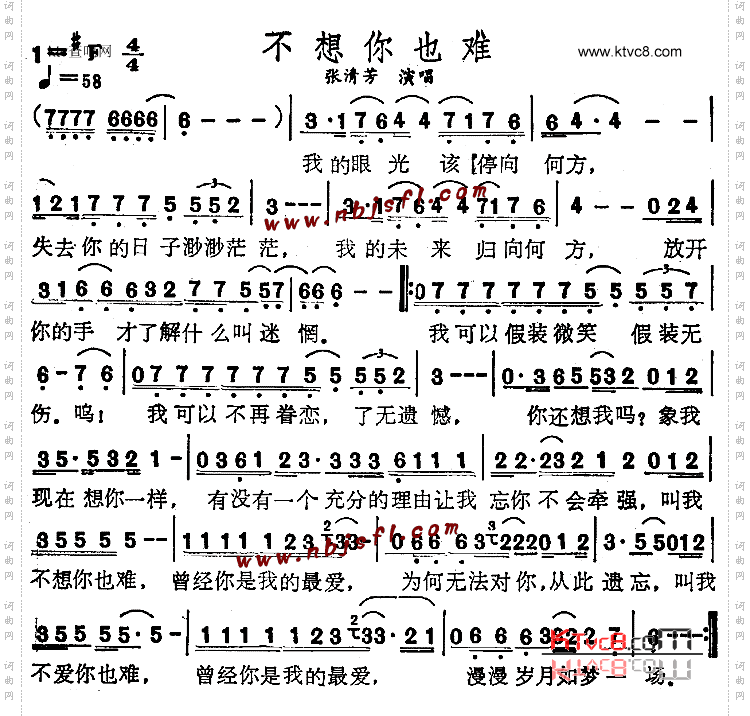 不想你也难
www.ktvc8.com
1=#F 4/4
♩=58
张清芳 演唱
(7777 6666 | 6 - - - ) | 3·1764 4 7176 | 64·4 - - |
我的眼光 该停向 何方，
121777 5 552 | 3--- | 3·1764 4 7176 | 4 - - 024 |
失去你的日子渺渺茫茫， 我的未来归向何方， 放开
3166632 77557 | 666 6 - - |: 07777775 557 |
你的手 才了解什么叫迷惘。 我可以假装微笑 假装无
6 - 76 | 07777775 552 | 3--- | 0·365532 012 |
伤。呜！ 我可以不再眷恋，了无遗憾， 你还想我吗？象我
35·5321- | 0361 23·333 6111 | 22·2321 2 2 012 |
现在想你一样， 有没有一个充分的理由让我 忘你不会牵强，叫我
35555 5-- | 1111 1 12333- | 066 63222012 | 3·55012 |
不想你也难，曾经你是我的最爱， 为何无法对你，从此遗忘，叫我
355555·5- | 1111112333·21 | 066 66322 7 | 3--- :|
不爱你也难， 曾经你是我的最爱， 漫漫岁月如梦一场。
www.nbjsfl.com
www.nbjsfl.com
KTvc8.com
词曲网